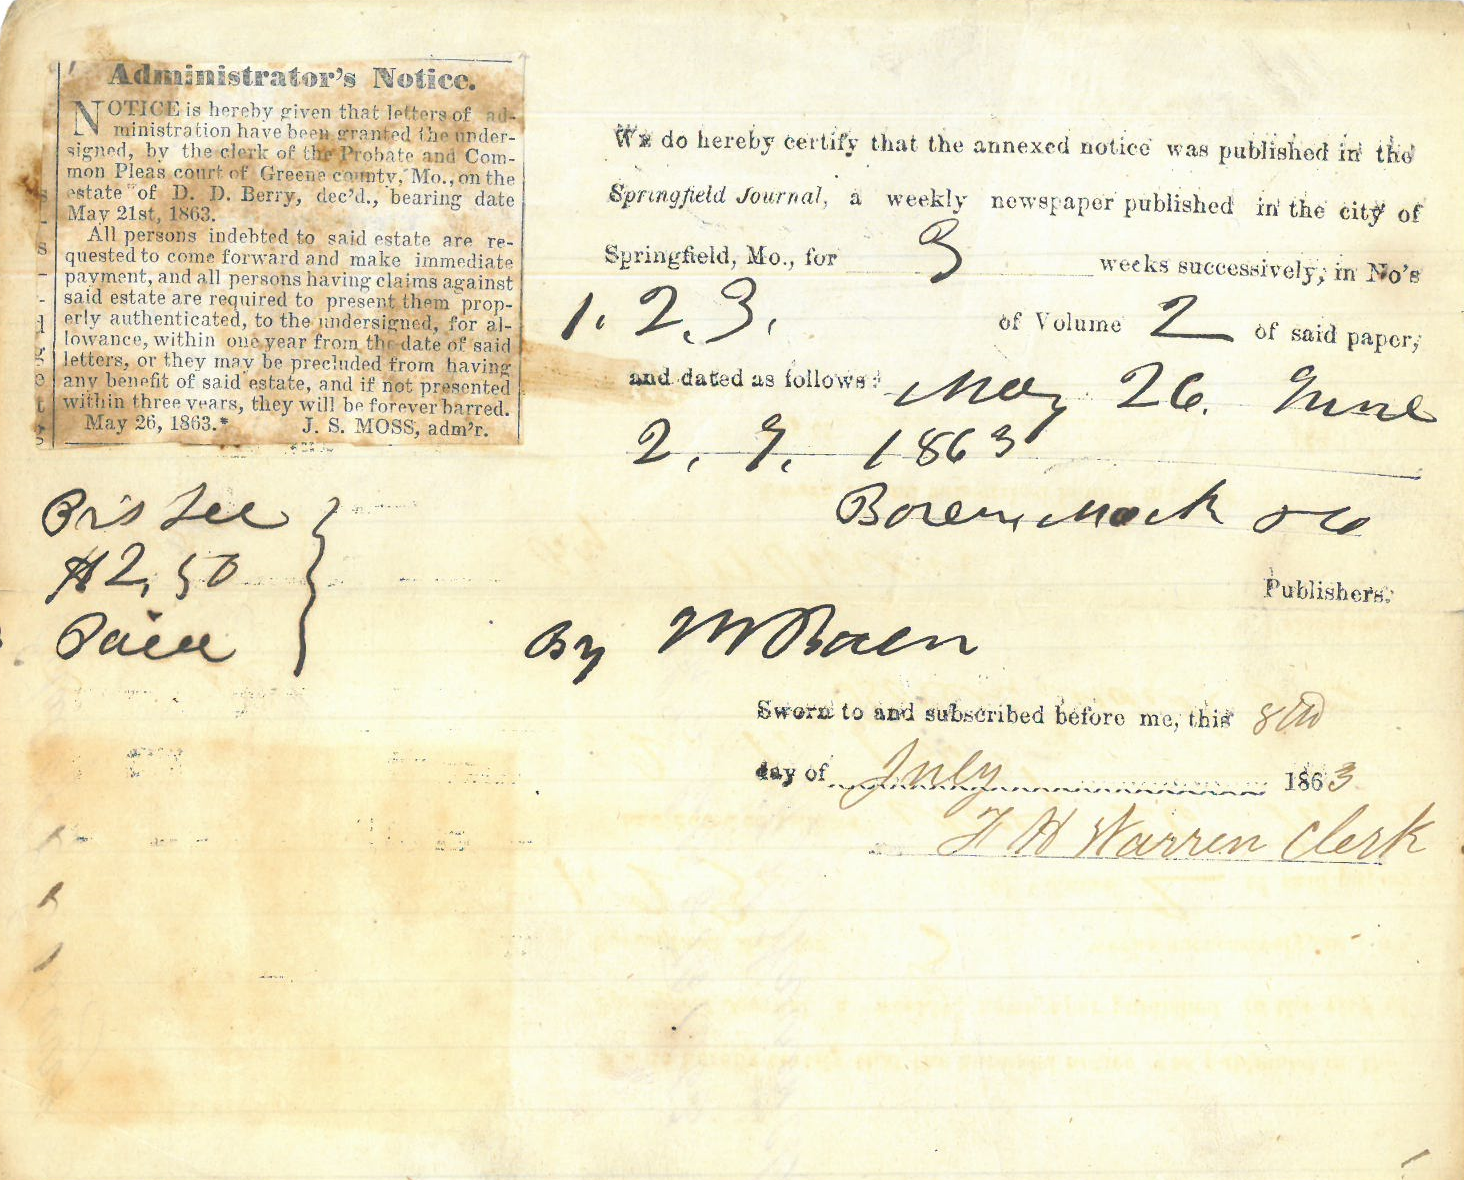 Administrator's Notice.
NOTICE is hereby given that letters of ad-
ministration have been granted the under-
signed, by the clerk of the Probate and Com-
mon Pleas court of Greene county, Mo., on the
estate of D. D. Berry, dec'd., bearing date
May 21st, 1863.
All persons indebted to said estate are re-
quested to come forward and make immediate
payment, and all persons having claims against
said estate are required to present them prop-
erly authenticated, to the undersigned, for al-
lowance, within one year from the date of said
letters, or they may be precluded from having
any benefit of said estate, and if not presented
within three years, they will be forever barred.
May 26, 1863.* J. S. MOSS, adm'r.
We do hereby certify that the annexed notice was published in the
Springfield Journal, a weekly newspaper published in the city of
Springfield, Mo., for 3 weeks successively, in No's
1. 2. 3. of Volume 2 of said paper,
and dated as follows: May 26. June
2. 9. 1863
Boren, Mack & Co
Publishers.
Prs fee
$2,50
Paid
By Boren
Sworn to and subscribed before me, this
day of July 1863
H Warren Clerk